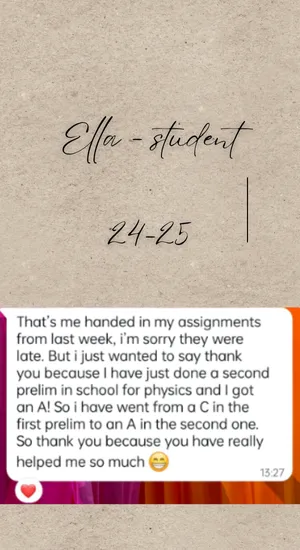 Ella - student
24-25
That's me handed in my assignments
from last week, i'm sorry they were
late. But i just wanted to say thank
you because I have just done a second
prelim in school for physics and I got
an A! So i have went from a C in the
first prelim to an A in the second one.
So thank you because you have really
helped me so much 😁
13:27